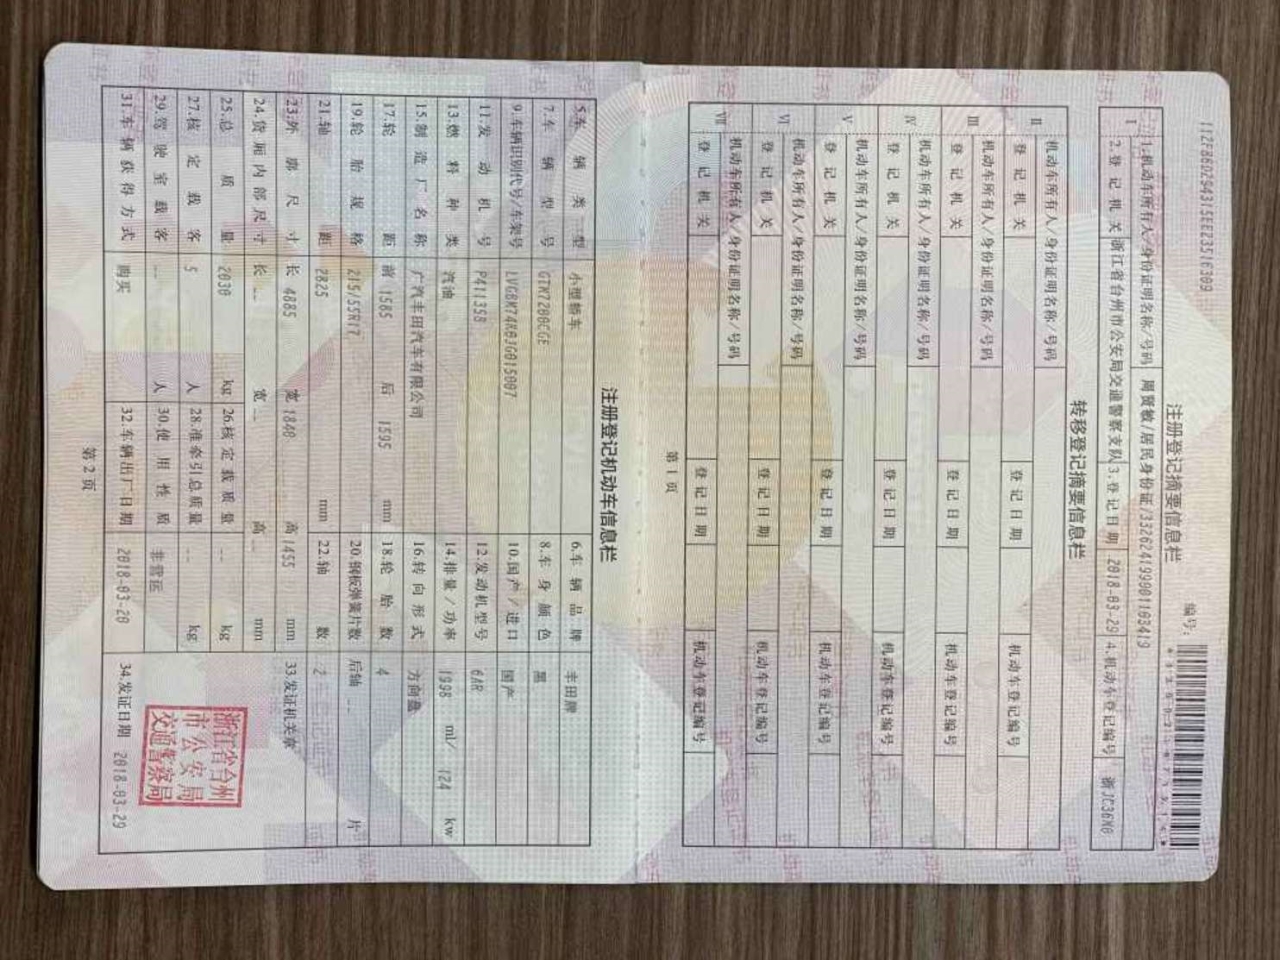 112F8802943155E23516303
注册登记摘要信息栏
编号:
I
1.机动车所有人/身份证明名称/号码 周贤敏/居民身份证/332624199001103419
2.登记机关 浙江省台州市公安局交通警察支队 3.登记日期 2018-03-29 4.机动车登记编号 浙JC36N0
转移登记摘要信息栏
II
机动车所有人/身份证明名称/号码
登记机关 登记日期 机动车登记编号
III
机动车所有人/身份证明名称/号码
登记机关 登记日期 机动车登记编号
IV
机动车所有人/身份证明名称/号码
登记机关 登记日期 机动车登记编号
V
机动车所有人/身份证明名称/号码
登记机关 登记日期 机动车登记编号
VI
机动车所有人/身份证明名称/号码
登记机关 登记日期 机动车登记编号
VII
机动车所有人/身份证明名称/号码
登记机关 登记日期 机动车登记编号
第1页
注册登记机动车信息栏
5.车辆类型 小型轿车 6.车辆品牌 丰田牌
7.车辆型号 GTM7200CGE 8.车身颜色 黑
9.车辆识别代号/车架号 LVGBM74K03G015007 10.国产/进口 国产
11.发动机号 P411358 12.发动机型号 6AR
13.燃料种类 汽油 14.排量/功率 1998 ml/ 124 kw
15.制造厂名称 广汽丰田汽车有限公司 16.转向形式 方向盘
17.轮距 前 1585 后 1595 mm 18.轮胎数 4
19.轮胎规格 215/55R17 20.钢板弹簧片数 后轴 -- 片
21.轴距 2825 mm 22.轴数 2
23.外廓尺寸 长 4885 宽 1840 高 1455 mm 33.发证机关章
24.货厢内部尺寸 长 -- 宽 -- 高 -- mm
25.总质量 2030 kg 26.核定载质量 -- kg
27.核定载客 5 人 28.准牵引总质量 -- kg
29.驾驶室载客 -- 人 30.使用性质 非营运
31.车辆获得方式 购买 32.车辆出厂日期 2018-03-20 34.发证日期 2018-03-29
浙江省台州
市公安局
交通警察局
第2页